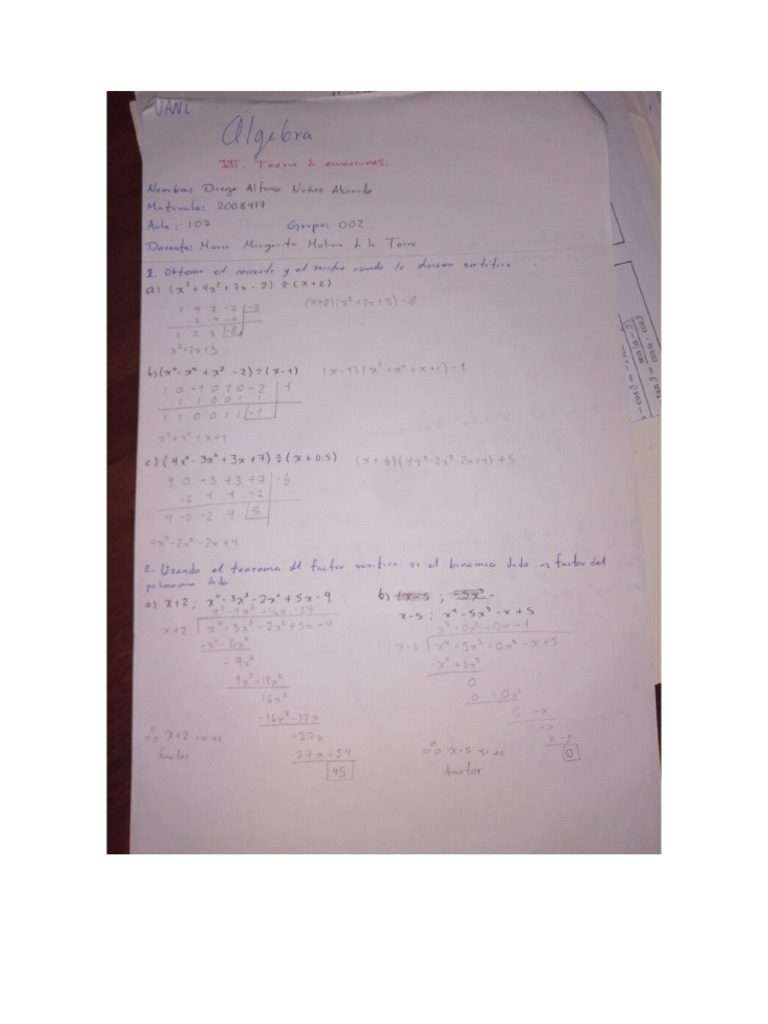 UANL
Algebra
VII. Teoria de ecuaciones.
Nombre: Diego Alfonso Núñez
Matricula: 2008417
Aula: 107 Grupo: 002
Docente: Margarita Molina de la Torre
1. Obtener el cociente y el residuo usando la division sintetica
a) (x³ + 4x² + 7x - 2) ÷ (x + 2)
(x+2)(x² + 2x + 3) - 8
1 4 7 -2 |-2
-2 -4 -6
1 2 3 |-8
x² + 2x + 3
b) (x⁶ - x⁴ + x² - 2) ÷ (x - 1) (x-1)(x⁵ + x⁴ + x + 1) - 1
1 0 -1 0 1 0 -2 | 1
1 1 0 0 1 1
1 1 0 0 1 1 |-1
x⁵ + x⁴ + x + 1
c) (4x⁴ - 3x² + 3x + 7) ÷ (x + 0.5) (x + ½)(4x³ - 2x² - 2x + 4) + 5
4 0 -3 +3 +7 | -½
-2 1 1 -2
4 -2 -2 4 |5
4x³ - 2x² - 2x + 4
2. Usando el teorema del factor verifica si el binomio dado es factor del
polinomio dado
a) x+2; x⁴ - 3x³ - 2x² + 5x - 9
x+2 | x⁴ - 3x³ - 2x² + 5x - 9
-x⁴ - 6x³
- 9x³
16x²
-16x² - 32x
-27x
27x + 54
45
∴ x+2 no es
factor
b) x-5 ; -5x³ -
x-5; x⁴ - 5x³ - x + 5
x³ + 0x² + 0x - 1
x-5 | x⁴ - 5x³ - 0x² - x + 5
-x⁴ + 5x³
0
0 0x²
0 - x
x - 5
0
∴ x-5 si es
factor